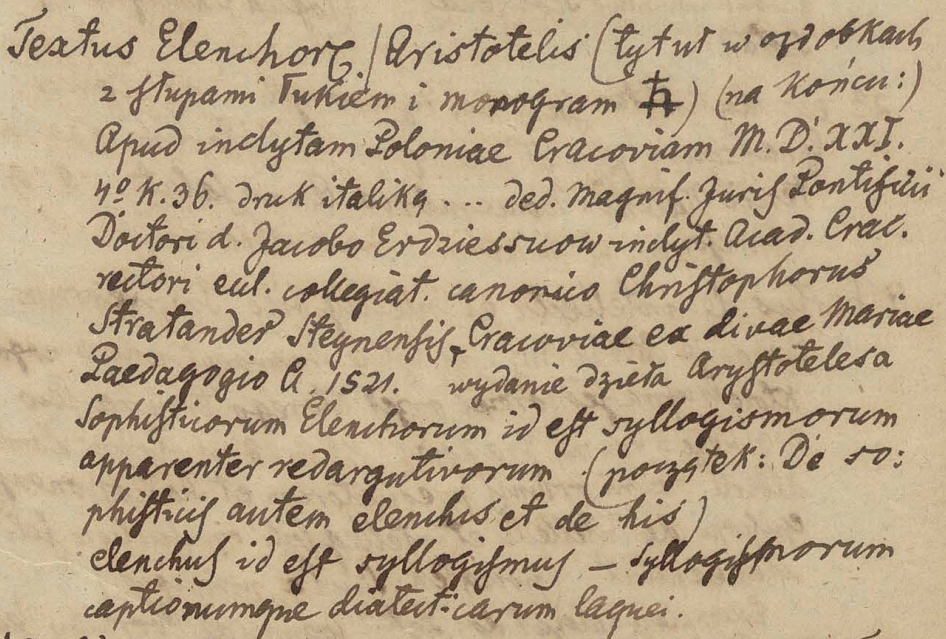 Textus Elenchorꝝ / Aristotelis (tytuł w ozdobkach
z słupami łukiem i monogram ) (na końcu:)
Apud inclytam Poloniae Cracoviam M. D. XXI.
4º K. 36. druk italiką ... ded. Magnif. Juris Pontificii
Doctori d. Jacobo Erdziessuow inclyt. Acad. Crac.
rectori eccl. collegiat. canonico Christophorus
Stratander Steynensis, Cracoviae ex divae Mariae
Paedagogio A. 1521. wydanie dzieła Arystotelesa
Sophisticorum Elenchorum id est syllogismorum
apparenter redargutivorum (początek: De so:
phisticis autem elenchis et de his)
elenchus id est syllogismus – syllogismorum
captionumque dialecticarum laquei.